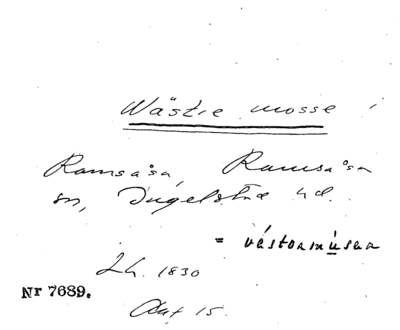 Wästre mosse
Ramsåsa, Ramsåsa
sn, Ingelstad hd.
= västoamusan
Lh. 1830
Nr 7689.
Akt 15.